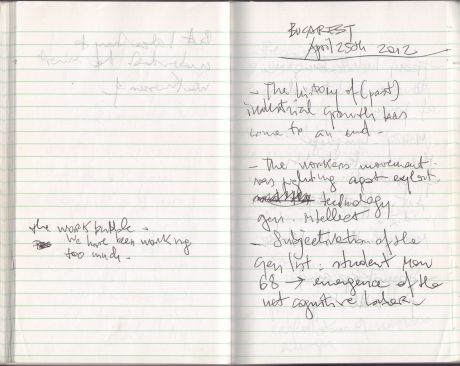 The work bubble.
We have been working
too much.
BUCAREST
April 25th 2012
- The history of (past)
industrial growth has
come to an end -
- The workers movement
was fighting against exploit.
technology
gen. intellect
- Subjectivation of the
gen Int : student mov
68 → emergence of the
net cognitive labor